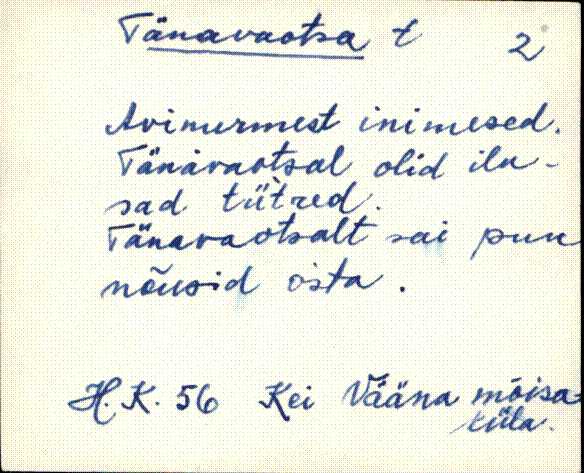 Tänavaotsa t 2
Avinurmest inimesed.
Tänavaotsal olid ilu-
sad tütred.
Tänavaotsalt sai puu
nõusid osta.
H.K. 56 Kei Vääna mõisa-
küla.